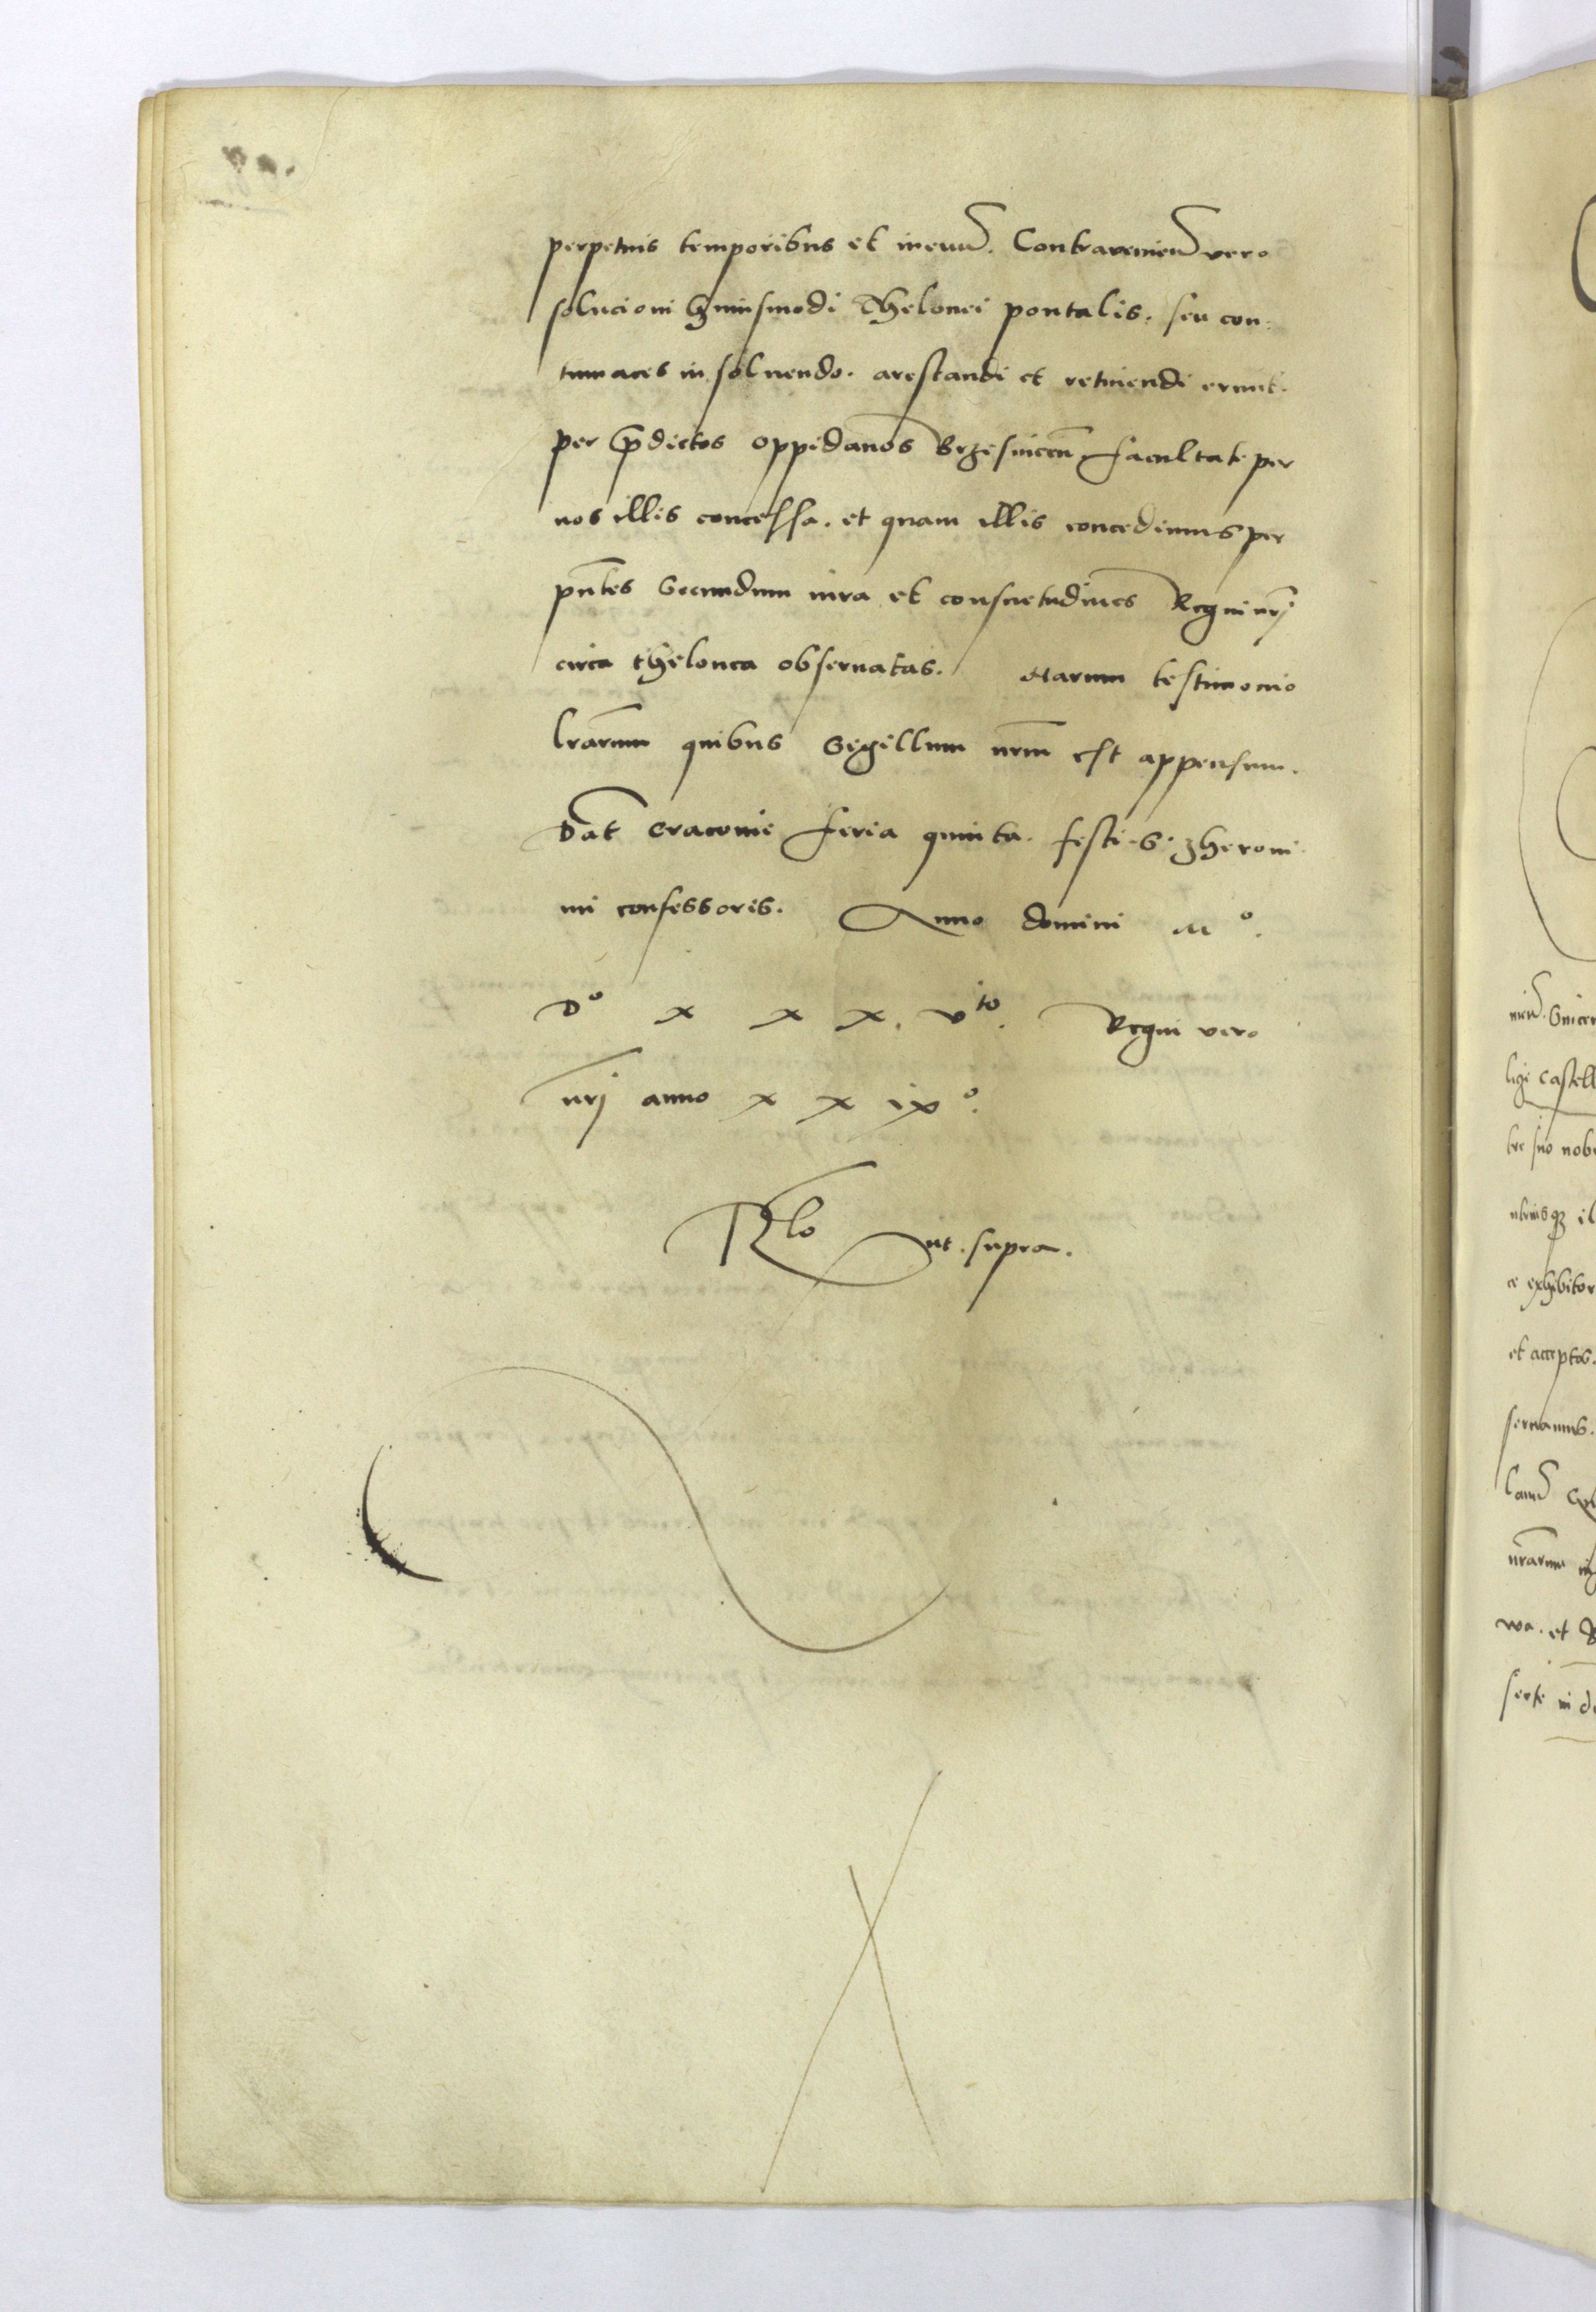 perpetuis temporibus et in euũ. Contravenieñ vero
solucioni huiusmodi Thelonei pontalis. seu con-
tumaces in soluendo. arestandi et retinendi erunt.
per p̄dictos oppidanos Brzesniceñ facultate per
nos illis concessa. et quam illis concedimus per
pñtes Secundum iura et consuetudines Regni nr̄j
circa thelonea obseruatas. Harum testimonio
lr̄arum quibus Sigillum nr̄m est appensum.
Dat̄ Cracovie feria quinta. festi. S. Jheroni-
mi confessoris. Anno domini M°.
D° x x x. vto. Regni vero
nr̄j anno x x ix°.
Rlo ut. supra.
niẽ. Snicer
ligi Castell
tre suo nob
ubriusqȝ il
ce exhibitor
et acceptos.
seruamus.
wa. et
serte in d